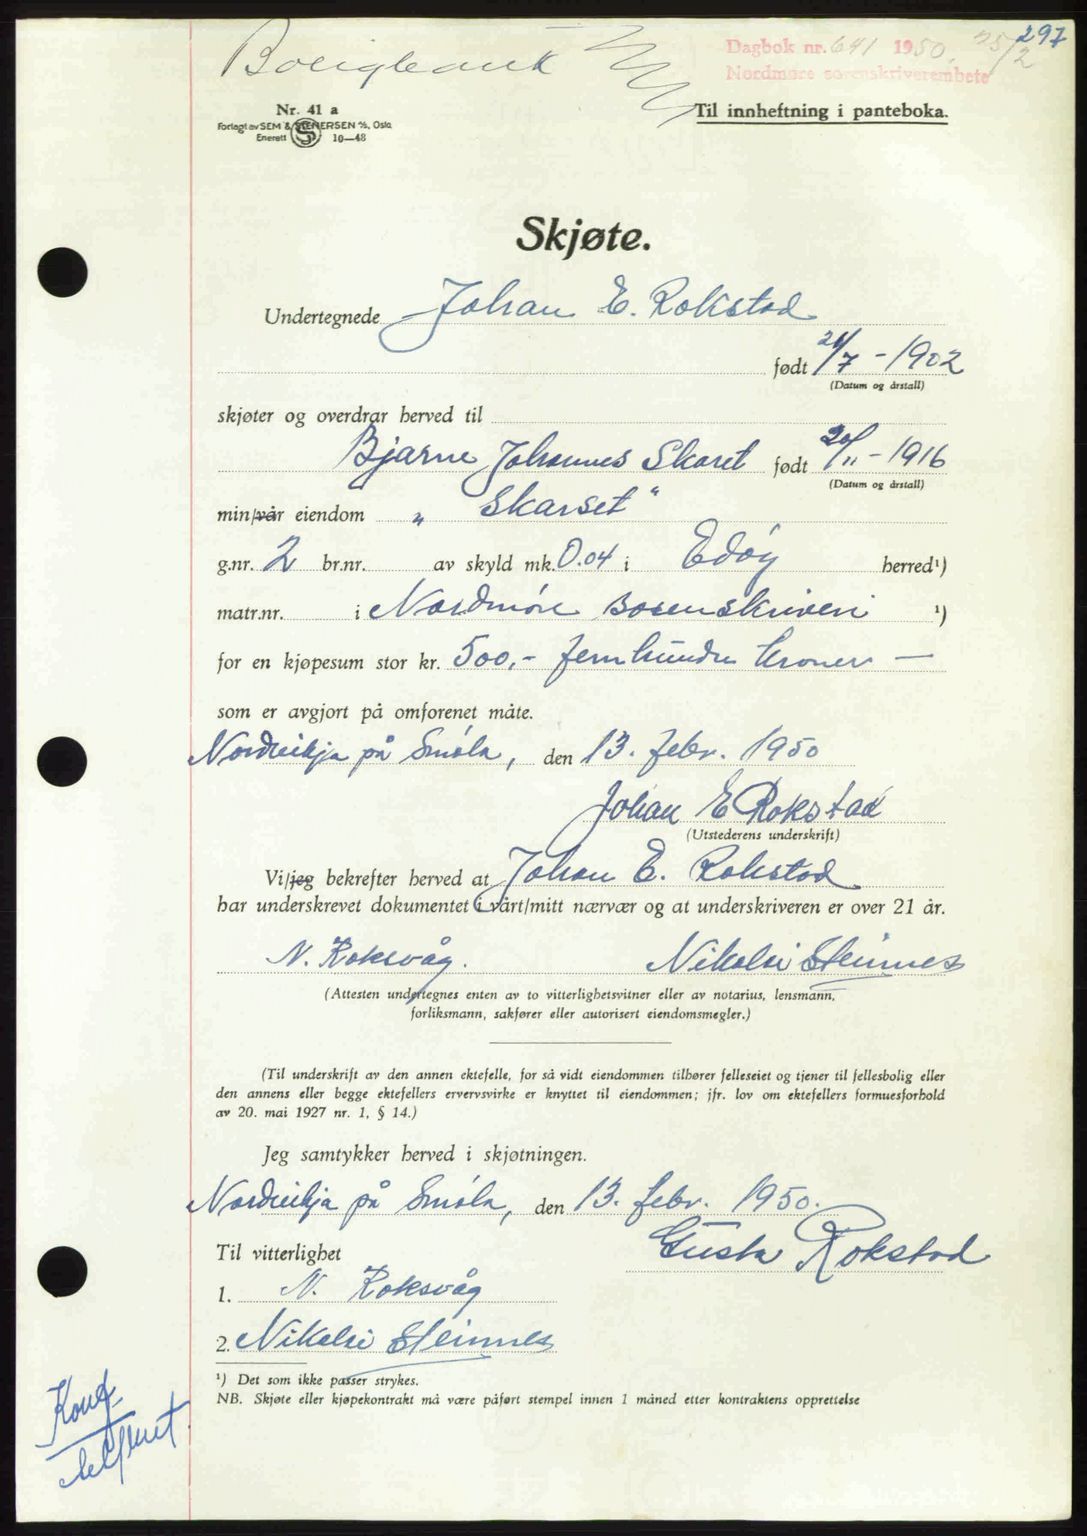 297
Dagbok nr. 641 1950. 25/2
Nordmøre sorenskriverembete
Boligbank
Nr. 41 a
Forlagt av SEM & STENERSEN A/S, Oslo
Enerett 10—48
Til innheftning i panteboka.
Skjøte.
Undertegnede Johan E. Rokstad
født 21/7 - 1902
(Datum og årstall)
skjøter og overdrar herved til
Bjarne Johannes Skaret født 20/11 - 1916
(Datum og årstall)
min/vår eiendom „ Skarset "
g.nr. 2 br.nr. av skyld mk. 0.04 i Edøy herred¹)
matr.nr. i Nordmøre sorenskriveri ¹)
for en kjøpesum stor kr. 500,- femhundre kroner —
som er avgjort på omforenet måte.
Nordvikja på Smøla, den 13. febr. 1950
Johan E Rokstad
(Utstederens underskrift)
Vi/jeg bekrefter herved at Johan E. Rokstad
har underskrevet dokumentet i vårt/mitt nærvær og at underskriveren er over 21 år.
N. Roksvåg. Nikolai Steinnes
(Attesten undertegnes enten av to vitterlighetsvitner eller av notarius, lensmann,
forliksmann, sakfører eller autorisert eiendomsmegler.)
(Til underskrift av den annen ektefelle, for så vidt eiendommen tilhører felleseiet og tjener til fellesbolig eller
den annens eller begge ektefellers ervervsvirke er knyttet til eiendommen; jfr. lov om ektefellers formuesforhold
av 20. mai 1927 nr. 1, § 14.)
Jeg samtykker herved i skjøtningen.
Nordvikja på Smøla, den 13. febr. 1950.
Gusta Rokstad
Til vitterlighet
1. N. Roksvåg
2. Nikolai Steinnes
¹) Det som ikke passer strykes.
NB. Skjøte eller kjøpekontrakt må være påført stempel innen 1 måned etter kontraktens opprettelse
Konf.